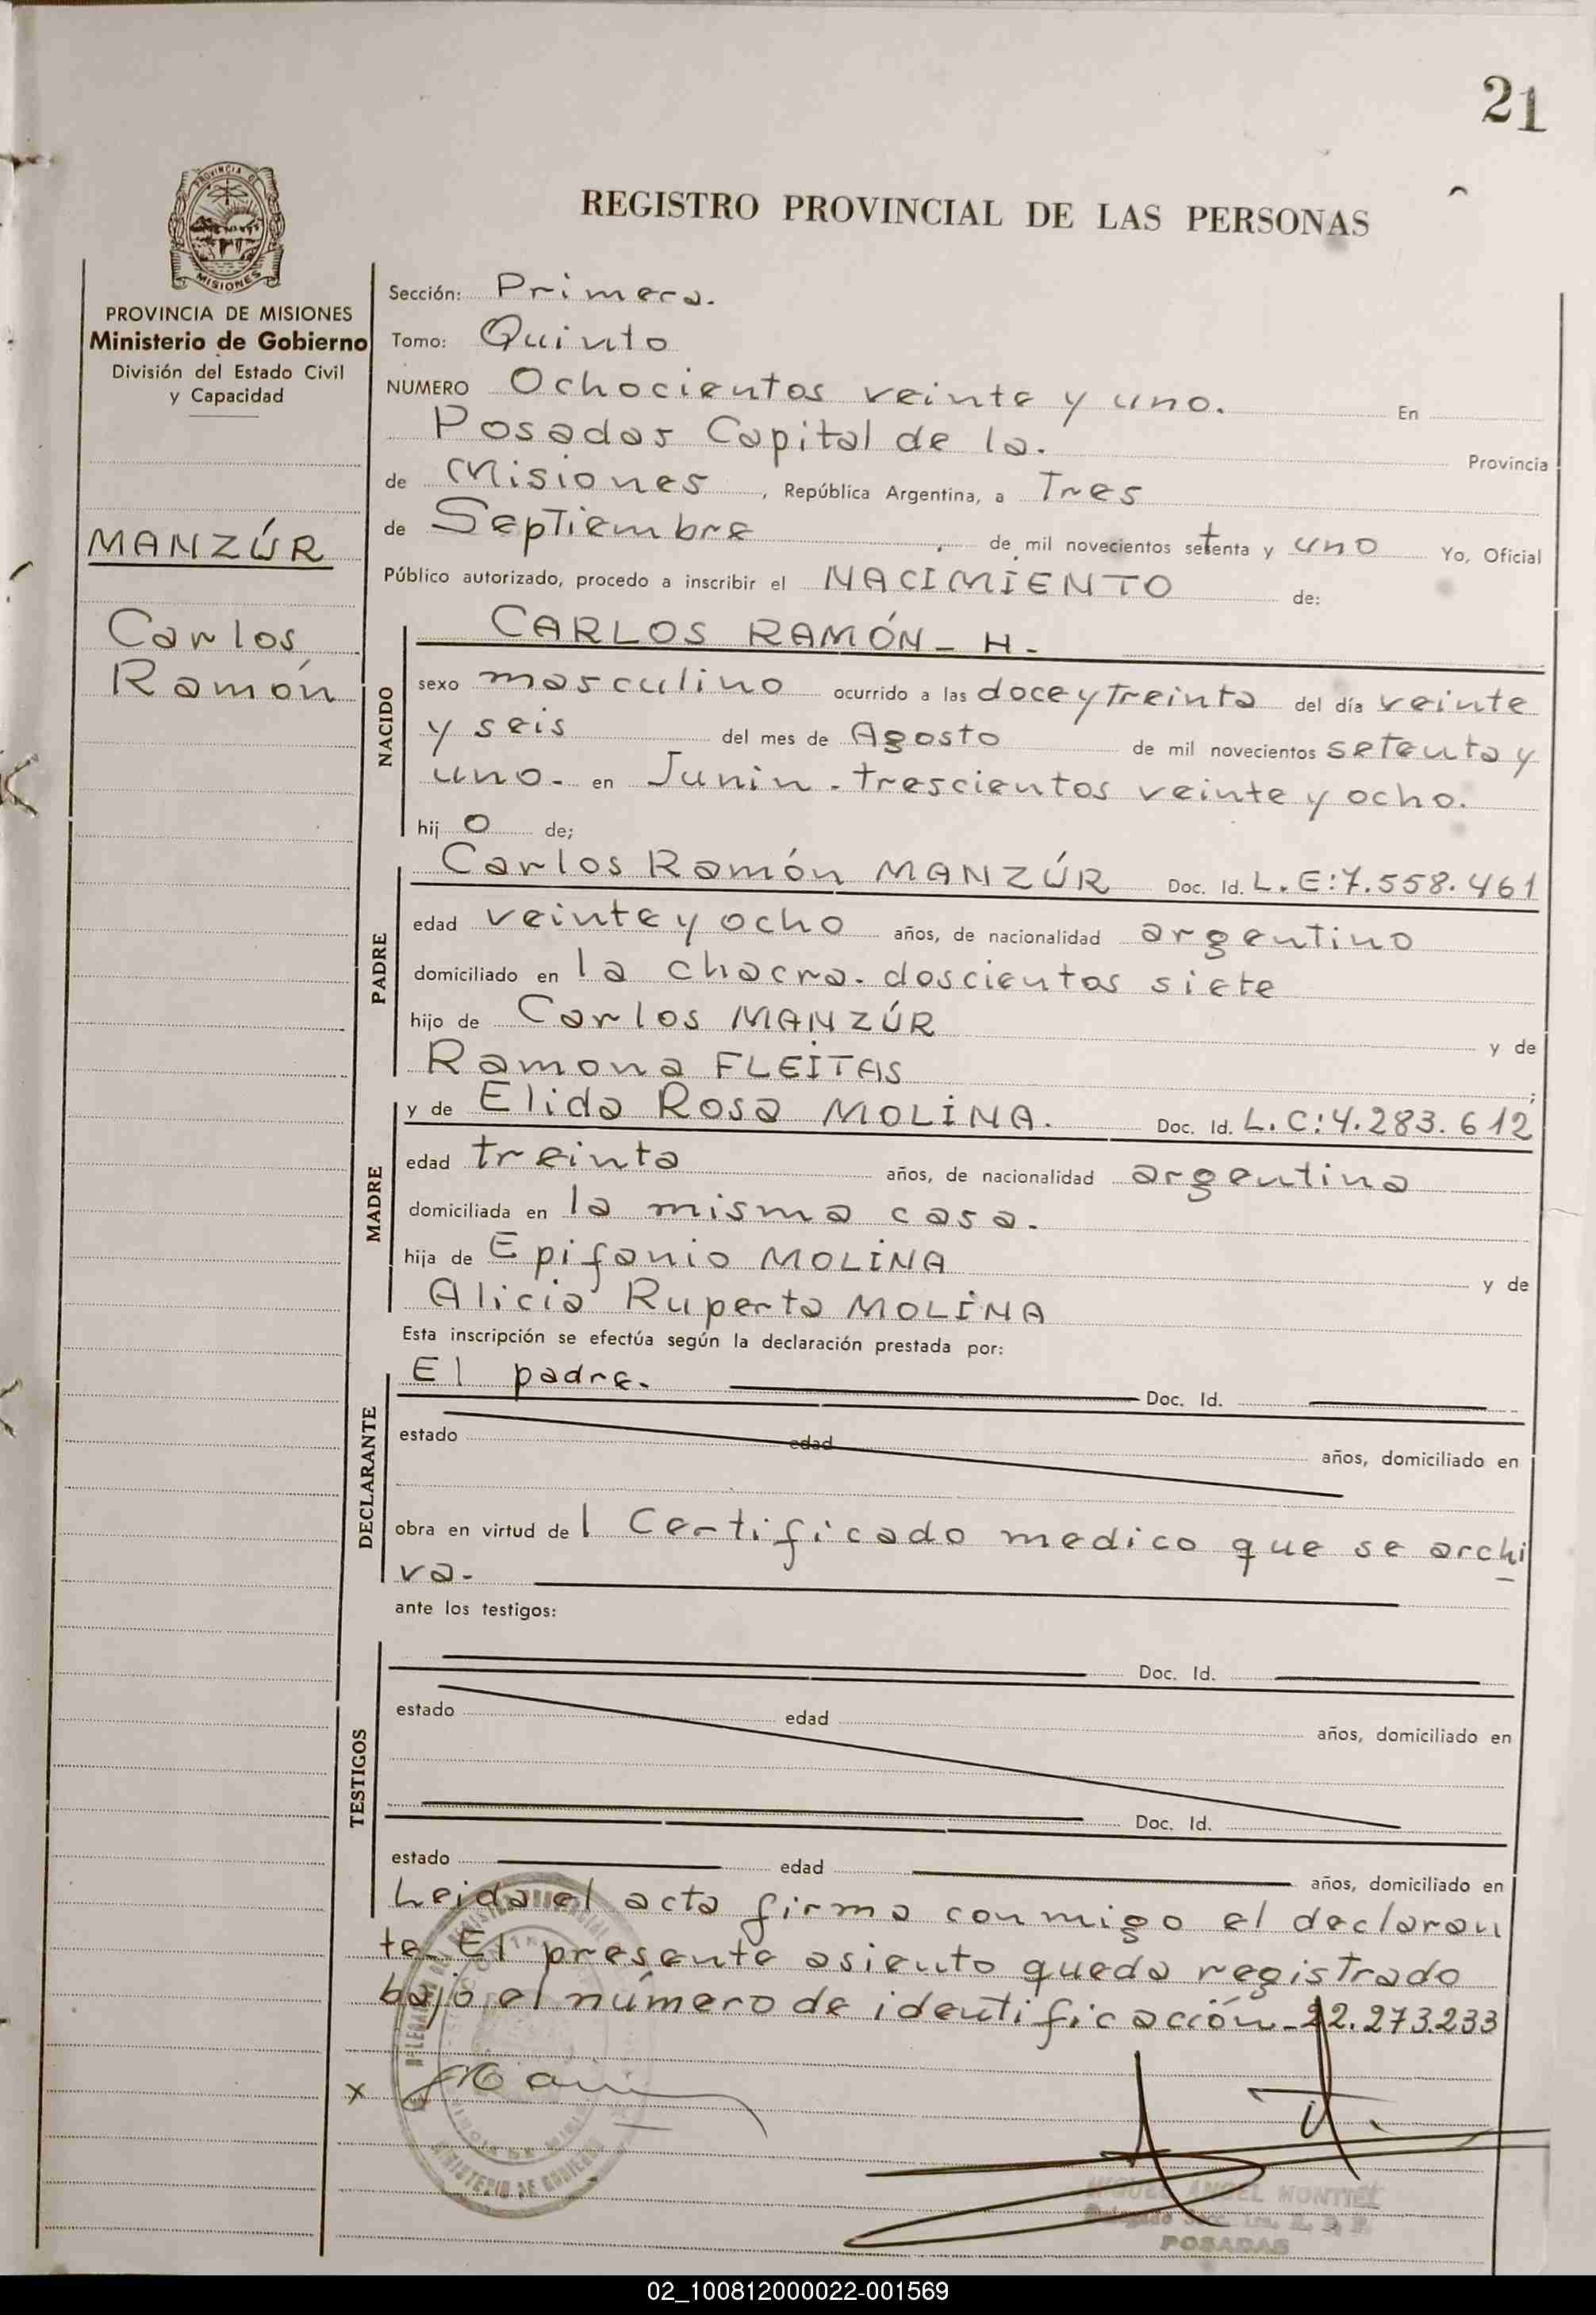 21
REGISTRO PROVINCIAL DE LAS PERSONAS
PROVINCIA DE
MISIONES
PROVINCIA DE MISIONES
Ministerio de Gobierno
División del Estado Civil
y Capacidad
MANZÚR
Carlos
Ramón
Sección: Primera.
Tomo: Quinto
NUMERO Ochocientos veinte y uno. En
Posadas Capital de la. Provincia
de Misiones, República Argentina, a Tres
de Septiembre de mil novecientos setenta y uno Yo, Oficial
Público autorizado, procedo a inscribir el NACIMIENTO de:
NACIDO
CARLOS RAMÓN - H.
sexo masculino ocurrido a las doce y treinta del día veinte
y seis del mes de Agosto de mil novecientos setenta y
uno. en Junin - trescientos veinte y ocho.
hij o de;
PADRE
Carlos Ramón MANZÚR Doc. Id. L.E:7.558.461
edad veinte y ocho años, de nacionalidad argentino
domiciliado en la chacra. doscientos siete
hijo de Carlos MANZÚR y de
Ramona FLEITAS ;
MADRE
y de Elida Rosa MOLINA. Doc. Id. L.C:4.283.612
edad treinta años, de nacionalidad argentina
domiciliada en la misma casa.
hija de Epifanio MOLINA y de
Alicia Ruperta MOLINA
Esta inscripción se efectúa según la declaración prestada por:
DECLARANTE
El padre. Doc. Id.
estado edad años, domiciliado en
obra en virtud de l Certificado medico que se archi
va.
ante los testigos:
TESTIGOS
Doc. Id.
estado edad años, domiciliado en
Doc. Id.
estado edad años, domiciliado en
Leida el acta firma conmigo el declaran
te. El presente asiento queda registrado
bajo el número de identificación - 22.273.233
x
MINISTERIO DE GOBIERNO
MIGUEL ANGEL MONTIEL
POSADAS
02_100812000022-001569